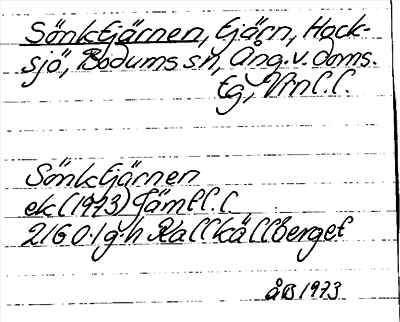 Sönktjärnen, tjärn, Hock-
sjö, Bodums sn, Ång. v. doms.
tg, Vnl. l.
Sönktjärnen
ek (1973) Jämtl. l.
21G 0-1 g-h Kallkällberget
åB 1973